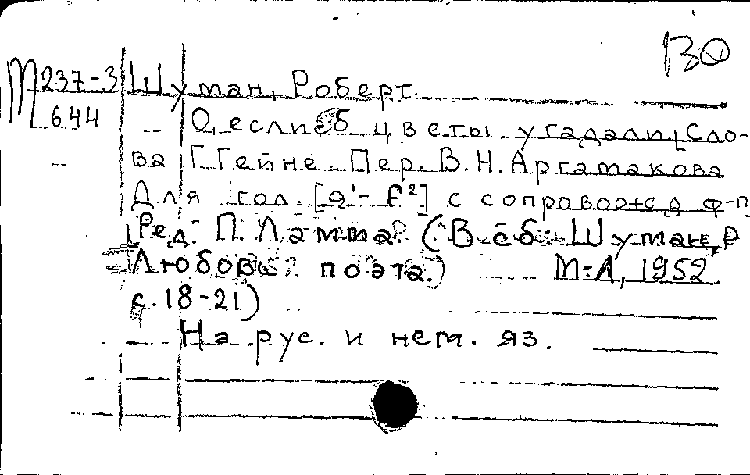 130
М 237-3 Шуман, Роберт.
644 О, если б цветы угадали, [Сло-
ва Г. Гейне. Пер. В.Н. Аргамакова
Для гол. [g¹-f²] с сопровожд ф-п
[Ред. П. Ламма.] (В сб.: Шуман, Р
Любовь поэта.) М-Л, 1952,
с. 18-21)
На рус. и нем. яз.